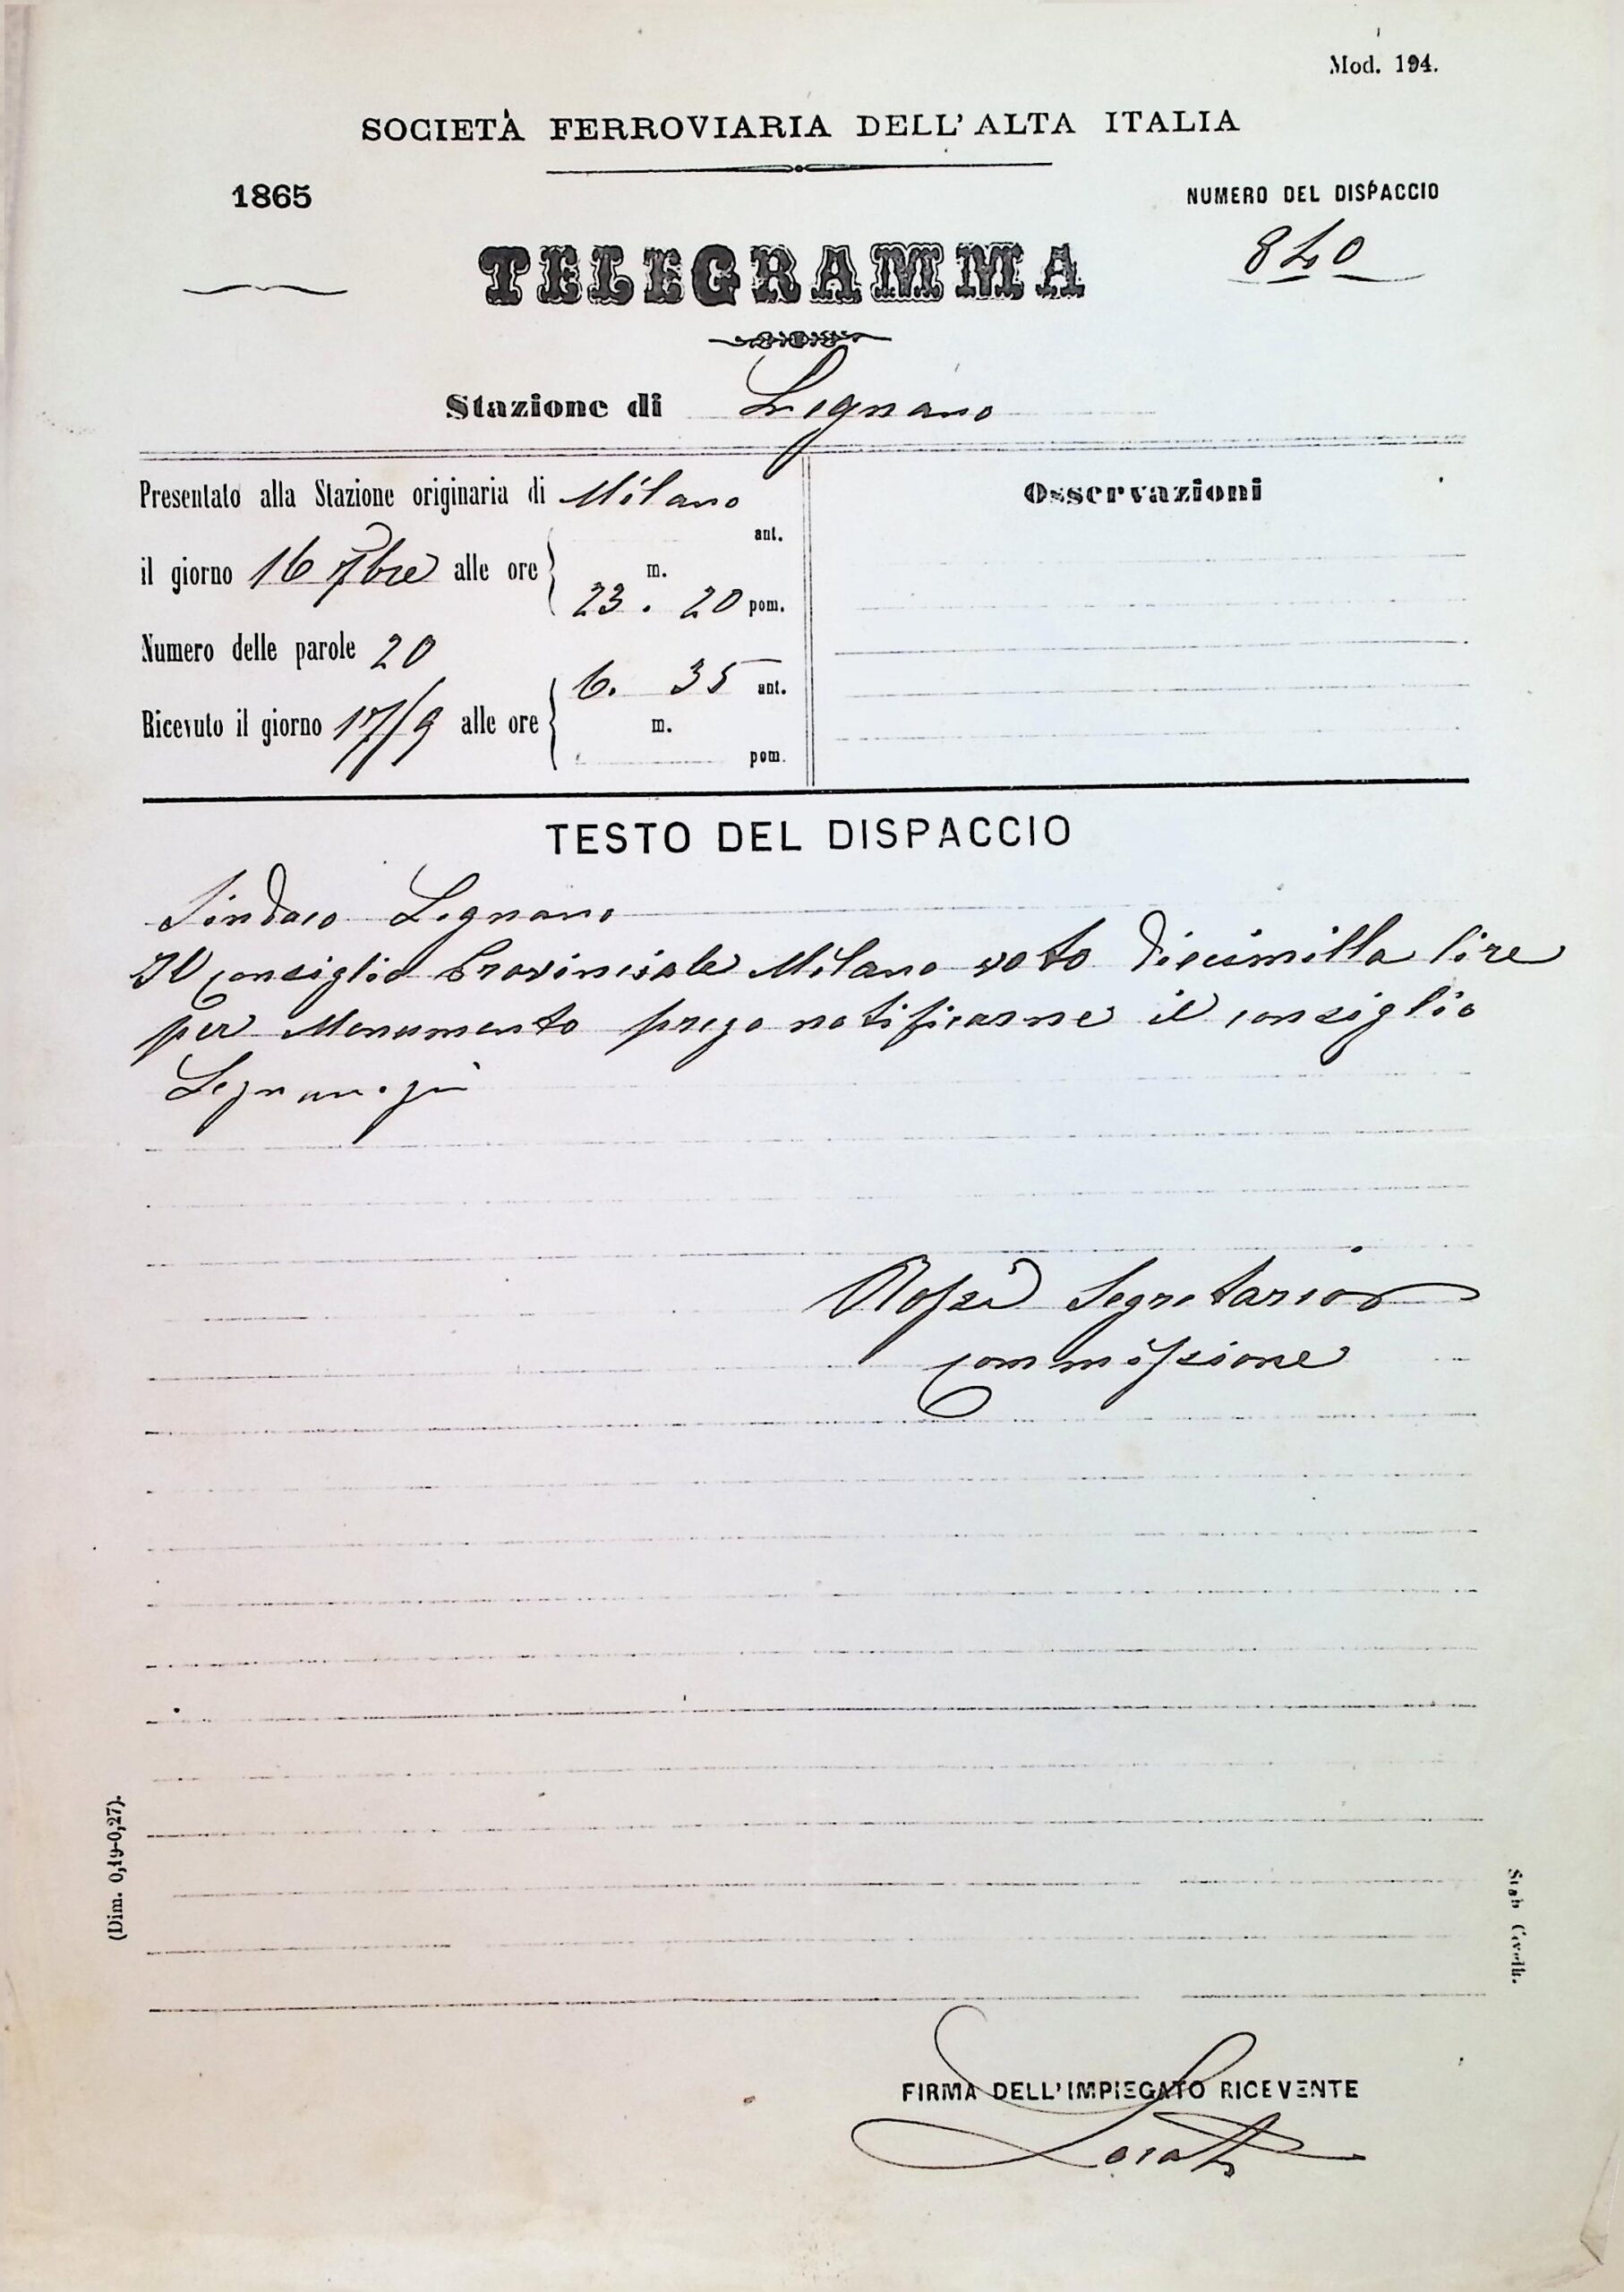 Mod. 194.
SOCIETÀ FERROVIARIA DELL' ALTA ITALIA
1865
NUMERO DEL DISPACCIO
840
TELEGRAMMA
Stazione di Legnano
Presentato alla Stazione originaria di Milano
Osservazioni
ant.
il giorno 16 7bre alle ore m.
23. 20 pom.
Numero delle parole 20
6. 35 ant.
Ricevuto il giorno 17/9 alle ore m.
pom.
TESTO DEL DISPACCIO
Sindaco Legnano
Il consiglio Provinciale Milano voto diecimilla lire
per Monumento prego notificarne il consiglio
Rossi Segretario
commissione
(Dim. 0,19-0,27).
Stab Civelli.
FIRMA DELL'IMPIEGATO RICEVENTE